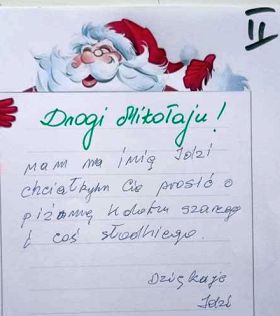 II
Drogi Mikołaju!
mam na imię Idzi
chciałbym Cię prosić o
piżamę koloru szarego
i coś słodkiego.
Dziękuje
Idzi